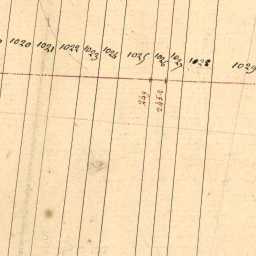 1020 1021 1022 1023 1024 1025 1026 1027 1028 1029